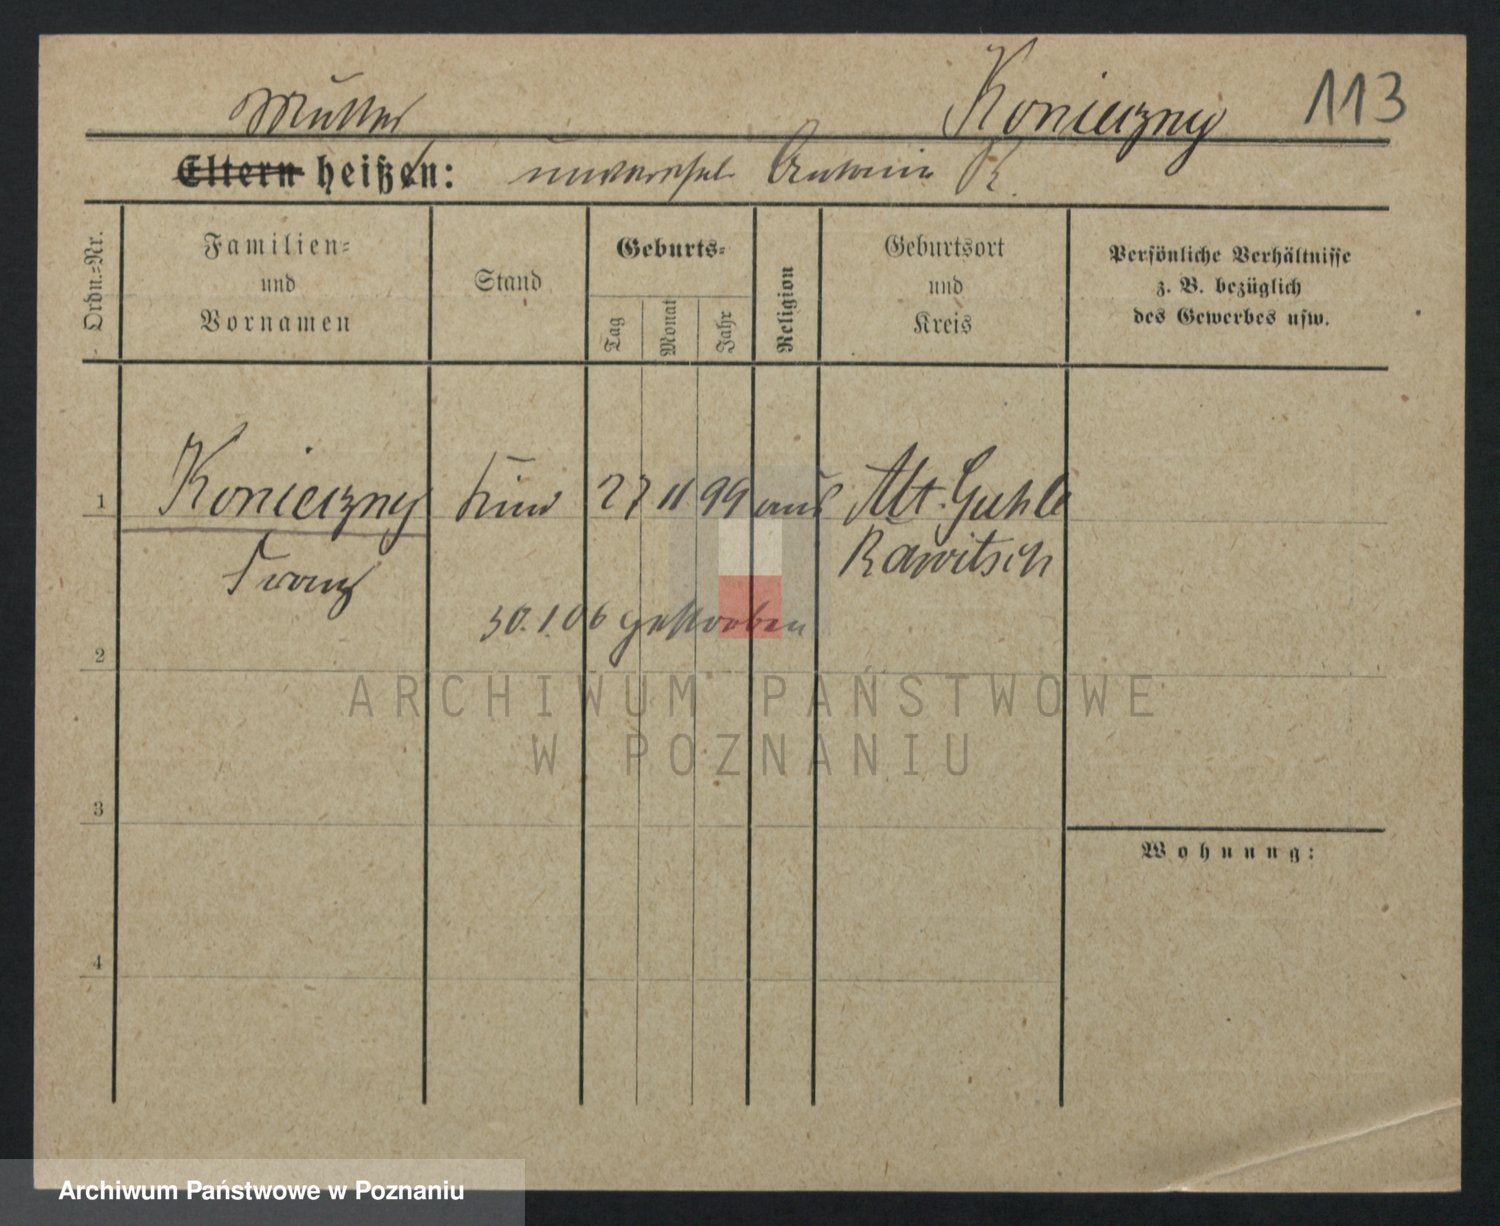 Konieczny 113
Mutter
Eltern heißen: unverehel. Antonie K.
Ordn.-Nr.
Familien-
und
Vornamen
Stand
Geburts-
Tag
Monat
Jahr
Religion
Geburtsort
und
Kreis
Persönliche Verhältnisse
z. B. bezüglich
des Gewerbes usw.
1 Konieczny Kind 27 11 99 Alt. Guhle
Franz Rawitsch
30.1.06 gestorben
2
3
4
Wohnung:
ARCHIWUM PAŃSTWOWE
W POZNANIU
Archiwum Państwowe w Poznaniu